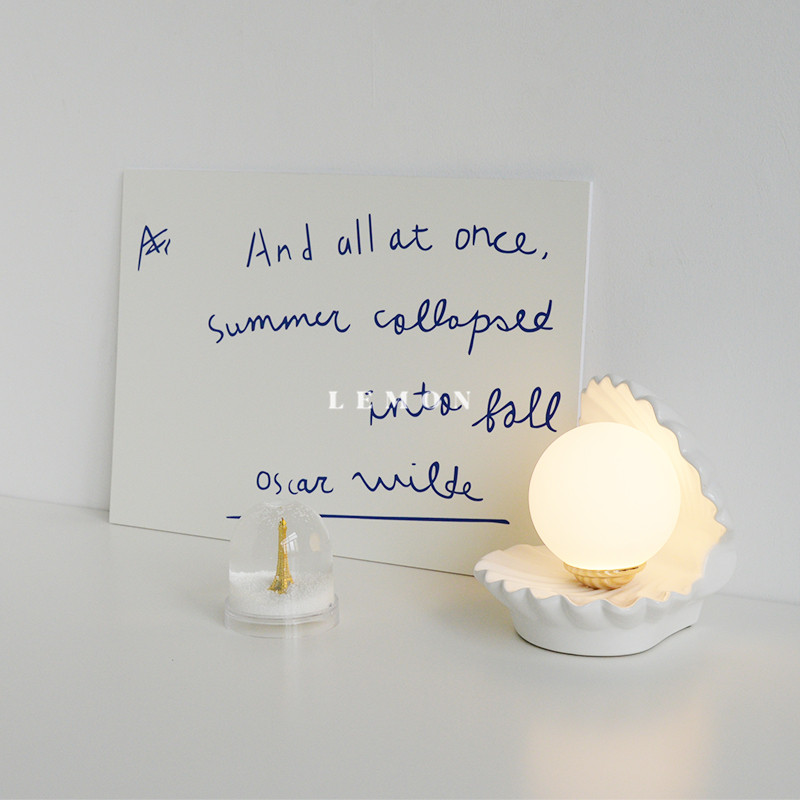 And all at once,
summer collapsed
into fall
oscar wilde
LEMON